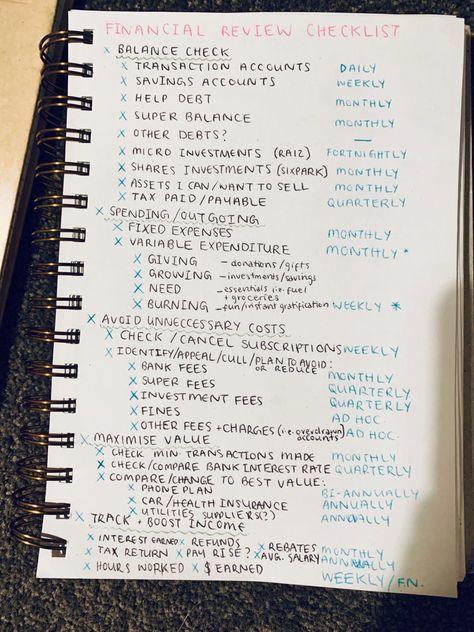 FINANCIAL REVIEW CHECKLIST
x BALANCE CHECK
x TRANSACTION ACCOUNTS DAILY
x SAVINGS ACCOUNTS WEEKLY
x HELP DEBT MONTHLY
x SUPER BALANCE MONTHLY
x OTHER DEBTS? —
x MICRO INVESTMENTS (RAIZ) FORTNIGHTLY
x SHARES INVESTMENTS (SIXPARK) MONTHLY
x ASSETS I CAN/WANT TO SELL MONTHLY
x TAX PAID/PAYABLE QUARTERLY
x SPENDING/OUTGOING
x FIXED EXPENSES MONTHLY
x VARIABLE EXPENDITURE MONTHLY *
x GIVING - donations/gifts
x GROWING - investments/savings
x NEED - essentials i.e. fuel
+ groceries
x BURNING - fun/instant gratification WEEKLY *
x AVOID UNNECCESSARY COSTS
x CHECK/CANCEL SUBSCRIPTIONS WEEKLY
x IDENTIFY/APPEAL/CULL/PLAN TO AVOID:
OR REDUCE
x BANK FEES MONTHLY
x SUPER FEES QUARTERLY
x INVESTMENT FEES QUARTERLY
x FINES AD HOC
x OTHER FEES + CHARGES (i.e. overdrawn accounts) AD HOC.
x MAXIMISE VALUE
x CHECK MIN. TRANSACTIONS MADE MONTHLY
x CHECK/COMPARE BANK INTEREST RATE QUARTERLY
x COMPARE/CHANGE TO BEST VALUE:
x PHONE PLAN BI-ANNUALLY
x CAR/HEALTH INSURANCE ANNUALLY
x UTILITIES SUPPLIERS(?) ANNUALLY
x TRACK + BOOST INCOME
x INTEREST EARNED x REFUNDS x REBATES MONTHLY
x TAX RETURN x PAY RISE? x AVG. SALARY ANNUALLY
x HOURS WORKED x $ EARNED WEEKLY/F.N.